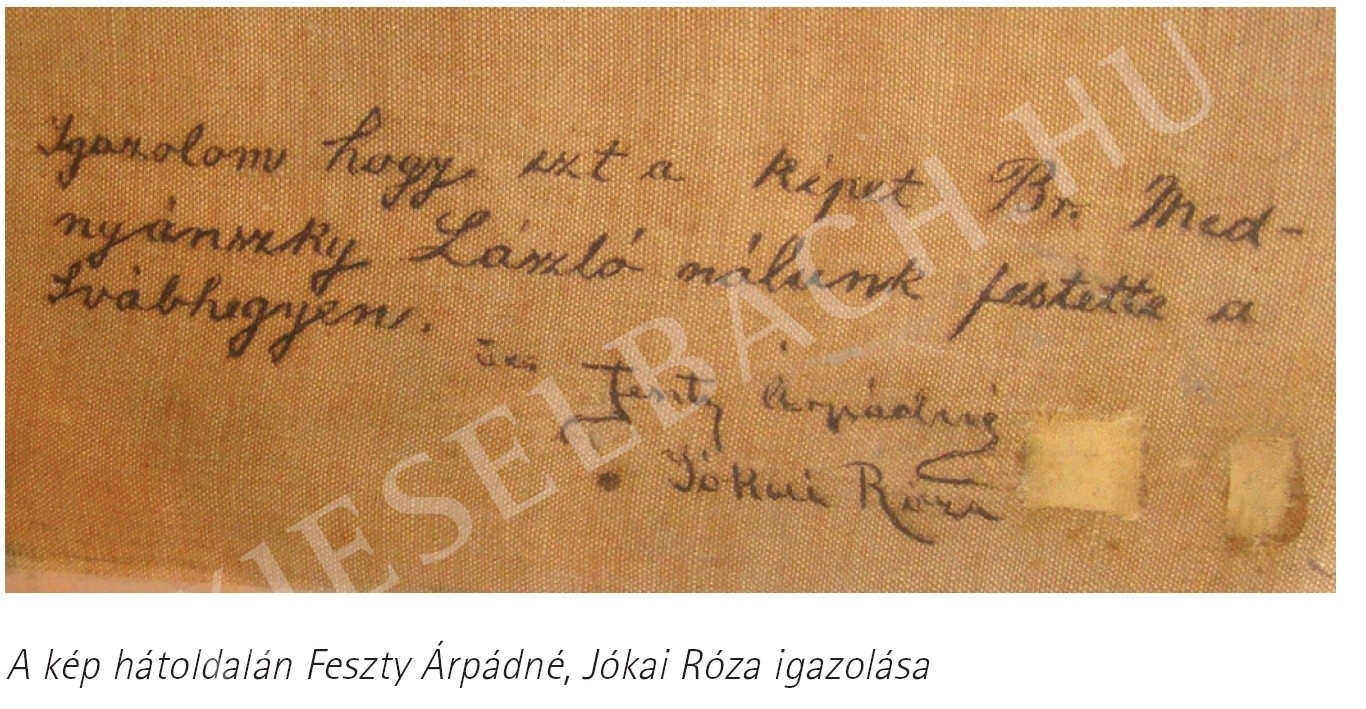 Igazolom hogy ezt a képet Br. Med-
nyánszky László nálunk festette a
Svábhegyen.
özv Feszty Árpádné
Jókai Róza
KIESELBACH.HU
A kép hátoldalán Feszty Árpádné, Jókai Róza igazolása